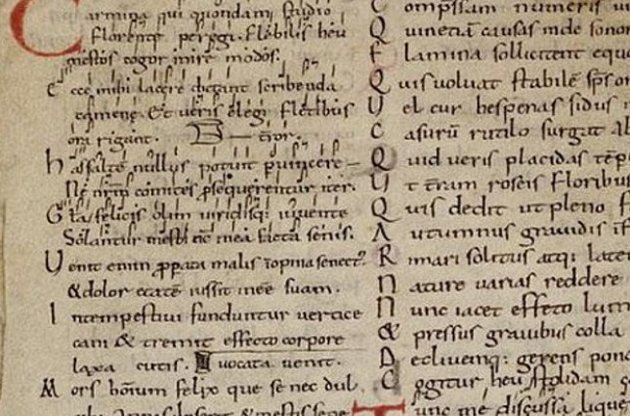 Carmina qui quondam studio
Florente peregi. Flebilis heu
mestos cogor inire modos.
Ecce mihi lacere dictant scribenda
camene Et ueris elegi fletibus
ora rigant.
has saltē nullus potuit puincere
Ne nrm̄ comites psequerentur iter.
Gła felicis olim uiridisq: iuuente
Solantur mesti nc̄ mea facta senis.
Uenit enim ppata malis inopina senect᾽
& dolor etatē iussit inēē suam.
Intempestiui funduntur uertice
cani & tremit effecto corpore
laxa cutis. uocata uenit.
Mors hōinum felix que se nec dul
& mestis sepe
ompssam numeris ui
Quinetiā causas unde sonor
Flamina sollicitent equo
Quis uoluat stabilē sps or
Uel cur hesperias sidus i
Casurū rutilo surgat ab
Quid ueris placidas tēp
Ut trām roseis floribus
Quis dedit ut pleno f
Autumnus grauidis īf
Rimari solitus atq: late
Nature uarias reddere
Nunc iacet effeto lum
& pressus grauibus colla
Decliuemq: gerens pond
Cogitur heu stolidam c
Tunc me discussa liqui